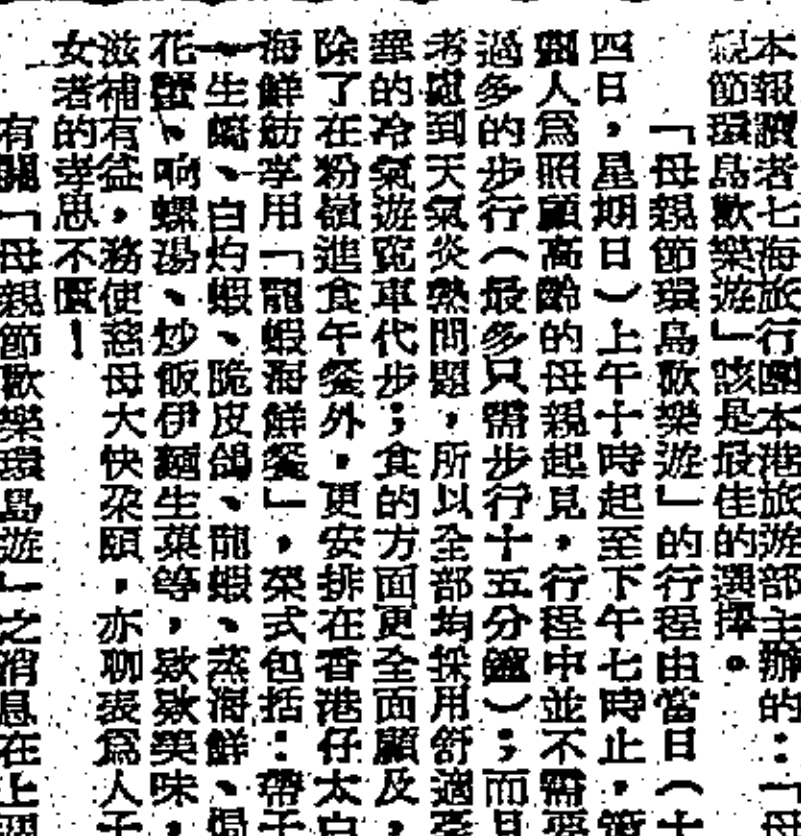 本報讀者七海旅行團本港旅遊部主辦的：「母
親節環島歡樂遊」該是最佳的選擇。
「母親節環島歡樂遊」的行程由當日（十
四日，星期日）上午十時起至下午七時止，
人爲照顧高齡的母親起見，行程中並不需要
過多的步行（最多只需步行十五分鐘）；而且
考慮到天氣炎熱問題，所以全部均採用舒適豪
華的冷氣遊覽車代步；食的方面更全面顧及，
除了在粉嶺進食午餐外，更安排在香港仔太白
海鮮舫享用「龍蝦海鮮餐」，菜式包括：帶子
一生蠔、白灼蝦、脆皮鴿、龍蝦、蒸海鮮、焗
花蟹、响螺湯、炒飯伊麵生菓等，欵欵美味，
滋補有益，務使慈母大快朶頤，亦聊表爲人子
女者的孝思不匱！
有關「母親節歡樂環島遊」之消息在上